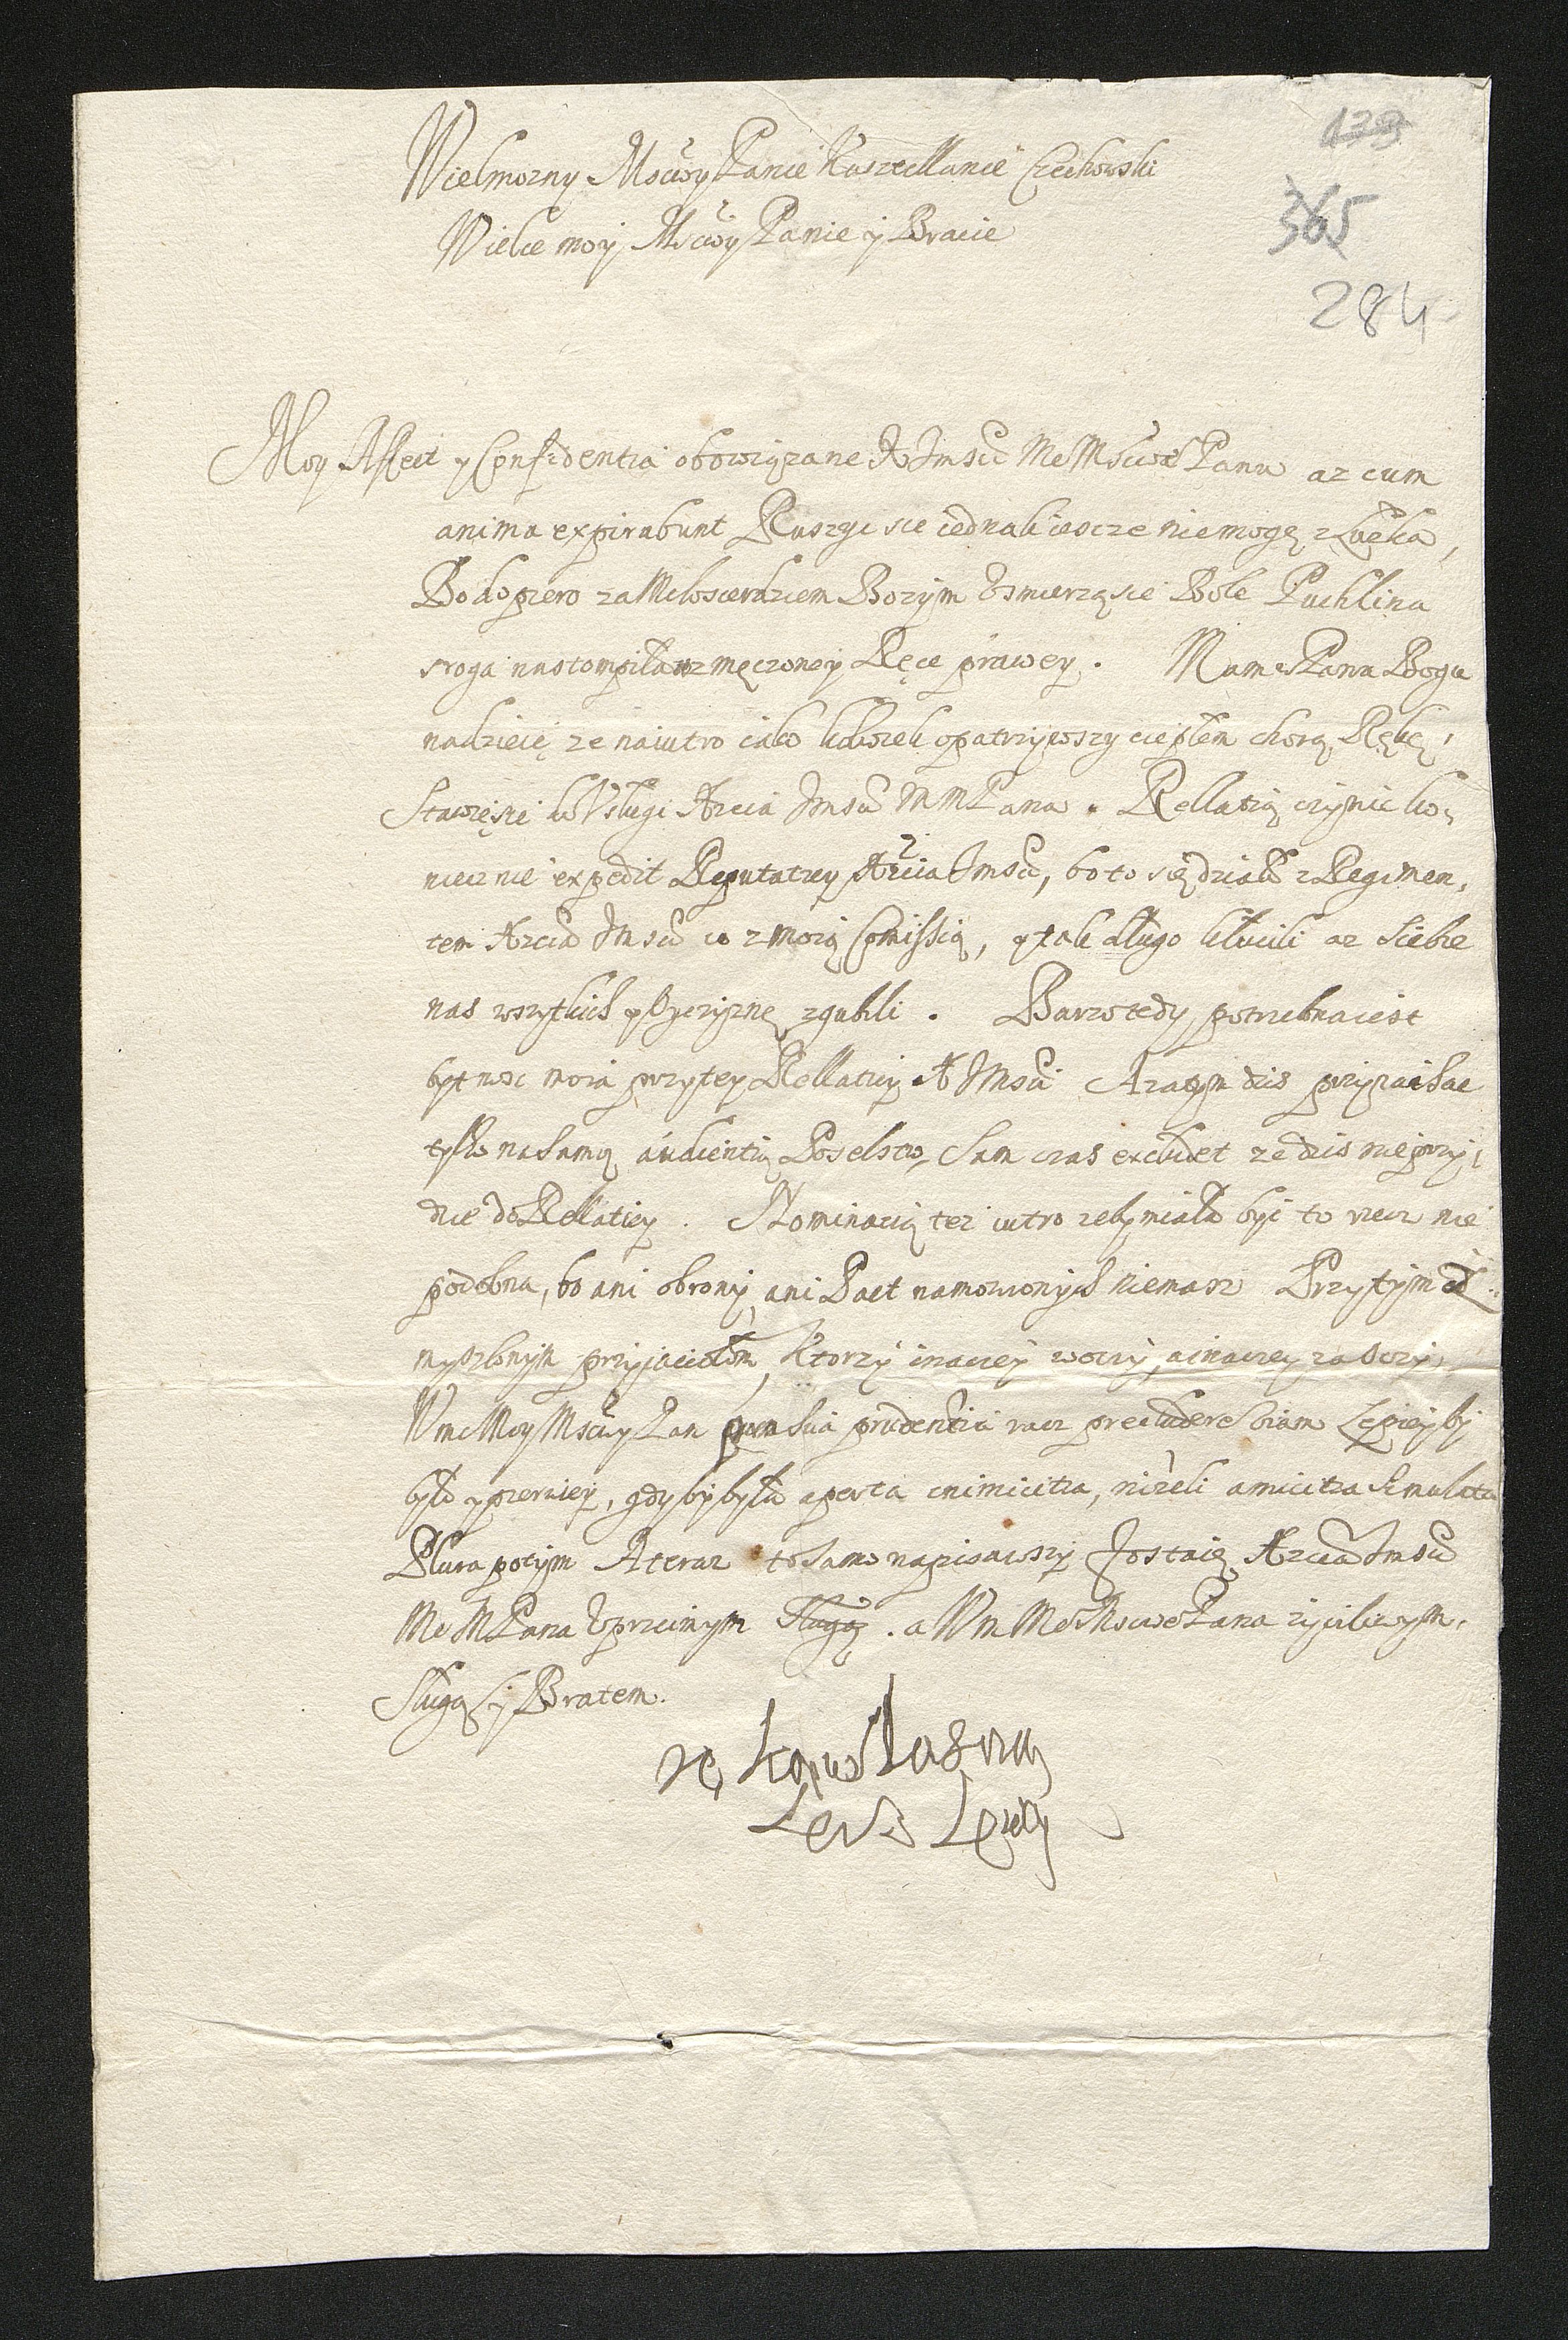 139
365
284
Wielmozny Mosciwy Panie Kasztellanie Czechowski
Wielce moy Mosciwy Panie y Bracie
Moy Affect y Confidentia obowiązane X Jmsci Me Msciwe Panu az cum
anima expirabunt Ruszyc sie iednak iescze niemogę z Łuzka,
Bo dopiero za Miłosierdziem Bozym Usmierzą sie Bole Puchlina
sroga nastompiła w zmęczoney Ręce prawey. Mam w Panu Bogu
nadzieię ze naiutro iako kolwiek opatrzywszy ciepłem chorą Rękę,
Stawię sie do Usługi Xcia Jmsci M M Pana. Rellatią czynic ko,
niecznie expedit Reputatiey Xcia Jmsci, bo to się działo z Regimen,
tem Xcia Jmsci co z moią Comissią, y tak długo kłucili az Siebie
nas wszytkich y Oyczyznę zgubili. Barzo tedy potrzebna iest
bytnosc moia przy tey Rellatiey X Jmsci A zatym dzis przyznaiac
tylko na samą audientią Poselstw, Sam czas excludet ze dzis nie przy,
dzie do Rellatiey. Nominacią tez iutro zeby miała byc to rzecz nie
podobna, bo ani obrony ani Pact namowionych niemasz Przytym od
myslonym przyjaciołom, Ktorzy inaczey w oczy, a inaczey za oczy,
Wm Moy Msciwy Pan pro sua prudentia racz precludere viam Lepiey by
było y pewniey, gdy by była aperta inimicitia, nizeli amicitia simulata
Plura potym A teraz to samo napisawszy Zostaię Xcia Jmsci
Me M Pana Uprzeimym Sługą. a Wm Me Msciwe Pana zyczliwym,
Sługą y Bratem.